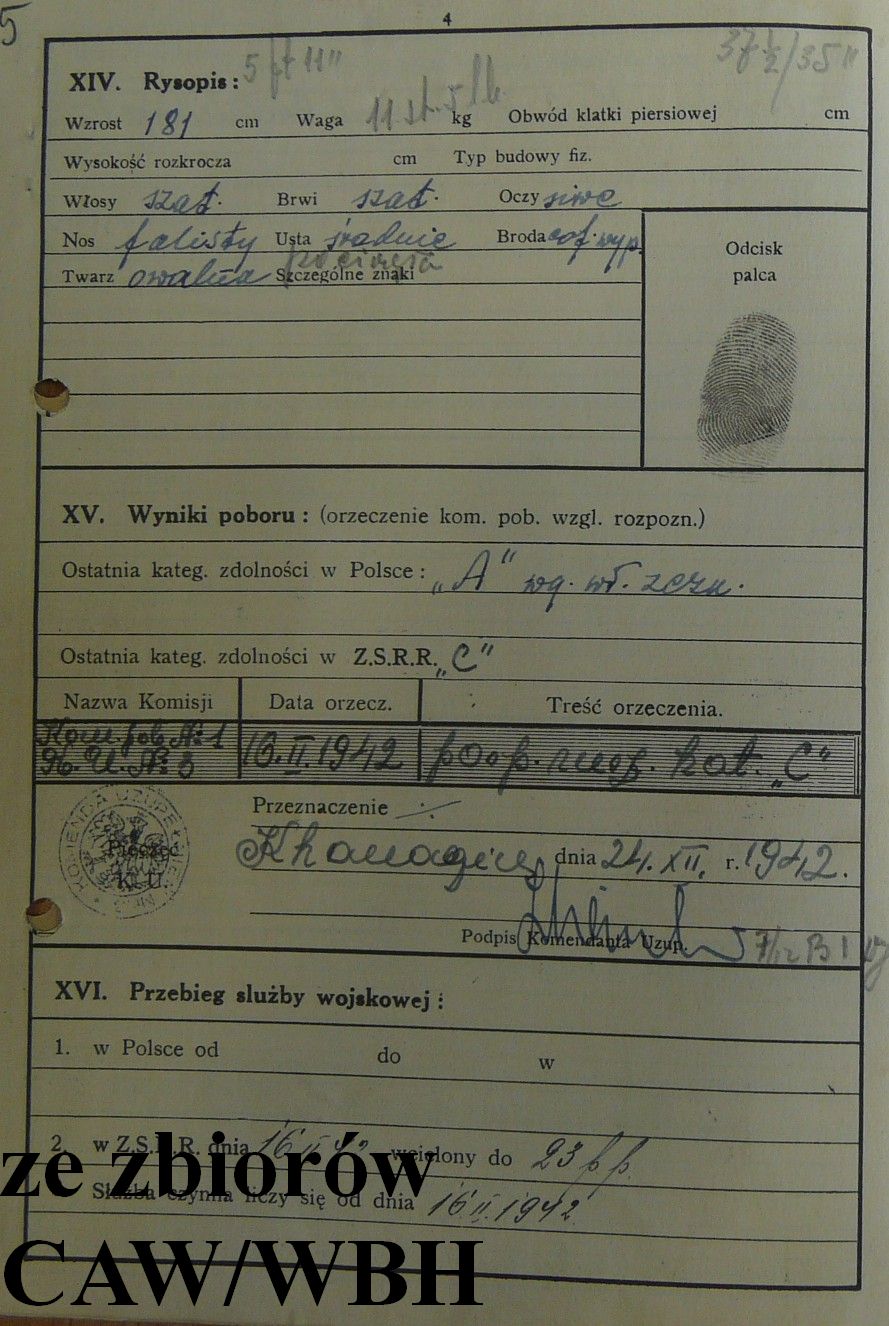 4
5
5 ft 11" 37½/35"
XIV. Rysopis:
Wzrost 181 cm Waga 11 st. 5 lb. kg Obwód klatki piersiowej cm
Wysokość rozkrocza cm Typ budowy fiz.
Włosy szat. Brwi szat. Oczy siwe
Nos falisty Usta średnie Broda cof. wyp.
Twarz owalna Szczególne znaki
Odcisk
palca
XV. Wyniki poboru: (orzeczenie kom. pob. wzgl. rozpozn.)
Ostatnia kateg. zdolności w Polsce: „A" wg. wł. zezn.
Ostatnia kateg. zdolności w Z.S.R.R. „C"
Nazwa Komisji Data orzecz. Treść orzeczenia.
Kom. pob. № 1
K. U. № 3 16.II.1942 kat. „C"
Przeznaczenie ·/·
Pieczęć
K. U.
Khanagin, dnia 24. XII. r. 1942.
Podpis Komendanta Uzup.
XVI. Przebieg służby wojskowej:
1. w Polsce od do w
2. w Z.S.R.R. dnia 16 II 42 wcielony do 23 p p.
Służba czynna liczy się od dnia 16.II.1942
ze zbiorów
CAW/WBH